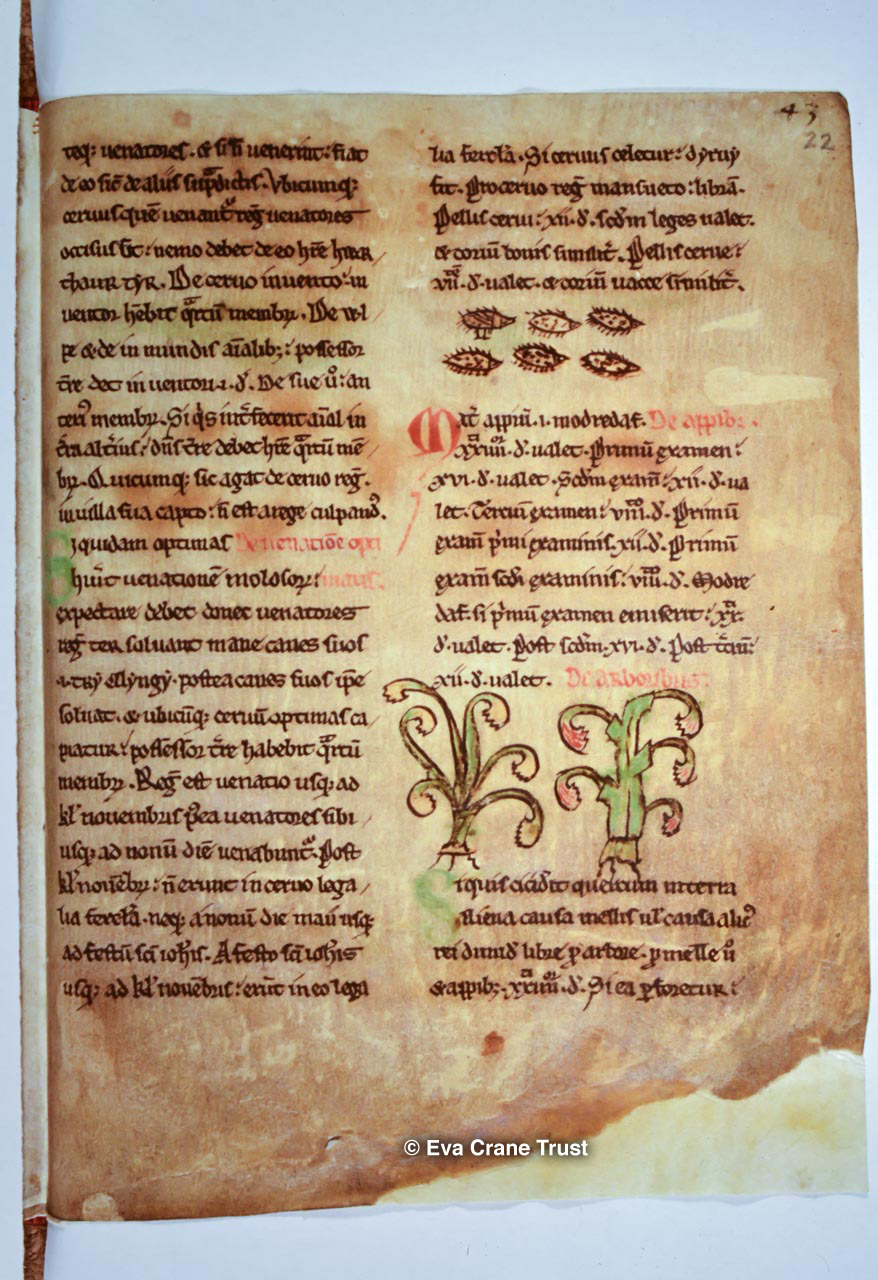 43
22
teq; uenatores. & si ħ uenerint: fiat
de eo sic̄ de aliis sup̄dictis. Vbicumq;
ceruus quē uenant͛ reḡ uenatores
occisus f͛it: nemo debet de eo hr̄e
TYR. De ceruo inuento: in
uentor hēbit q͛rtū membr̄. De
& de in mundis aīalib;: possessor
tr̄e det in uentori .i. đ. De sue ū: an
membr̄. Si q̇s int͛fecerit aīal in
t͛ra alt͛ius: dn̄s tr̄e debet hr̄e q͛rtū mē
br̄. Quicumq; sic agat de ceruo reḡ.
in uilla sua capto: ñ est a rege culpand͛.
Siquidam optimas De uenatiōe opti
hu͛it uenationē molosor̄: matis.
expectare debet donec uenatores
reḡ ter soluant mane canes suos
.i. try ellyngy. postea canes suos ip̄e
soluat. & ubicūq; ceruū optimas ca
piatur: possessor tr̄e habebit q͛rtū
membr̄. Reḡ est uenatio usq; ad
kl̄ nouembris p̄ea uenatores sibi
usq; ad nonū diē uenabunt͛. Post
kl̄ nouēbr̄: ñ erunt in ceruo lega
lia ferc̄la. neq; a nonū die maii usq;
ad festū sc̄i ioh̄is. A festo sc̄i ioh̄is
usq; ad kl̄ nouēbris: erūt in eo lega
lia ferc̄la. Si ceruus celetur: dyruy
fit. Pro ceruo reḡ mansueto: librā.
Pellis cerui: xii. đ. scđm leges ualet.
& coriū bouis simili͛t. Pellis cerue:
viii. đ. ualet. & coriū uacce simili͛t.
Mat͛ appiū .i. modredaf. De appib;.
xxiiii. đ. ualet. Primū examen:
xvi. đ. ualet. Scđm exam̄: xii. đ. ua
let. Terciū examen: viii. đ. Primū
exam̄ p͛mi examinis. xii. đ. Primū
exam̄ scđi examinis: viii. đ. Modre
daf. si p͛mū examen emiserit: xx.
đ. ualet. Post scđm. xvi. đ. Post t͛ciū:
xii. đ. ualet. De arboribus.
Siquis cicid͛it quercum in terra
aliena causa mellis ul͛ causa alic͛
rei dimiđ libre p̄ arbore. p̄ melle ū
& appib;. xxiiii. đ. Si ea
© Eva Crane Trust